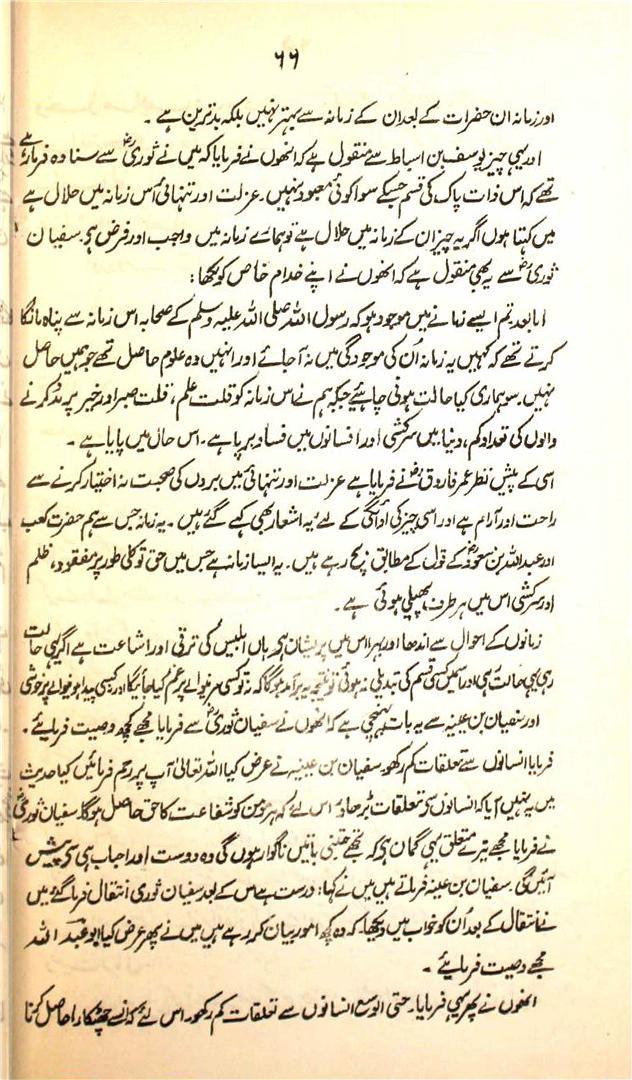 ٦٦
اور زمانہ ان حضرات کے بعد ان کے زمانہ سے بہتر نہیں بلکہ بدترین ہے ۔
اور یہی چیز یوسف بن اسباط سے منقول ہے کہ انھوں نے فرمایا کہ میں نے ثوریؒ سے سنا وہ فرماتے
تھے کہ اس ذات پاک کی قسم جس کے سوا کوئی معبود نہیں۔ عزلت اور تنہائی اس زمانہ میں حلال ہے
میں کہتا ہوں اگر یہ چیز ان کے زمانہ میں حلال ہے تو ہمارے زمانہ میں واجب اور فرض ہے۔ سفیان
ثوریؒ سے یہ بھی منقول ہے کہ انھوں نے اپنے خدام خاص کو لکھا :
اما بعد تم ایسے زمانے میں موجود ہو کہ رسول اللہ صلی اللہ علیہ وسلم کے صحابہ اس زمانہ سے پناہ مانگا
کرتے تھے کہ کہیں یہ زمانہ اُن کی موجودگی میں نہ آ جائے اور انہیں وہ علوم حاصل تھے جو ہمیں حاصل
نہیں۔ سو ہماری کیا حالت ہونی چاہیئے جبکہ ہم نے اس زمانہ کو قلت علم ، قلت صبر اور خیر پر مدد کرنے
والوں کی تعداد کم، دنیا میں سرکشی اور انسانوں میں فساد برپا ہے۔ اس حال میں پایا ہے ۔
اسی کے پیش نظر عمر فاروقؓ نے فرمایا ہے عزلت اور تنہائی میں بروں کی صحبت نہ اختیار کرنے سے
راحت اور آرام ہے اور اسی چیز کی ادائگی کے لئے یہ اشعار بھی کہے گئے ہیں ۔ یہ زمانہ جس سے ہم حضرت کعب
اور عبد اللہ بن مسعودؓ کے قول کے مطابق بچ رہے ہیں۔ یہ ایسا زمانہ ہے جس میں حق تو کلی طور پر مفقود، ظلم
اور سرکشی اس میں ہر طرف پھیلی ہوئی ہے ۔
زمانوں کے احوال سے اندھا اور بہرا اس میں پریشان ہے ہاں ابلیس کی ترقی اور اشاعت ہے اگر یہی حالت
رہی یہی حالت رہی اور اس میں کسی قسم کی تبدیلی نہ ہوئی تو نتیجہ یہ برآمد ہوگا کہ نہ تو کسی مرنیوالے پر غم کیا جائیگا اور کسی پیدا ہونیوالے پر خوشی
اور سفیان بن عیینہ سے یہ بات پہنچی ہے کہ انھوں نے سفیان ثوریؒ سے فرمایا مجھے کچھ وصیت فرمائیے ۔
فرمایا انسانوں سے تعلقات کم رکھو۔ سفیان بن عیینہ نے عرض کیا اللہ تعالیٰ آپ پر رحم فرمائیں کیا حدیث
میں یہ نہیں آیا کہ انسانوں سے تعلقات بڑھاؤ اس لئے کہ ہر مومن کو شفاعت کا حق حاصل ہوگا۔ سفیان ثوریؒ
نے فرمایا مجھے تیرے متعلق یہی گمان ہے کہ تجھے جتنی باتیں ناگوار ہوں گی وہ دوست اور احباب ہی سے پیش
آئیں گی۔ سفیان بن عیینہ فرماتے ہیں میں نے کہا: درست ہے اس کے بعد سفیان ثوری انتقال فرما گئے میں
نے انتقال کے بعد اُن کو خواب میں دیکھا۔ کہ وہ کچھ امور بیان کر رہے ہیں میں نے پھر عرض کیا ابو عبد اللہ
مجھے وصیت فرمائیے ۔
انھوں نے پھر یہی فرمایا۔ حتی الوسع انسانوں سے تعلقات کم رکھو۔ اس لئے کہ ان سے چھٹکارا حاصل کرنا